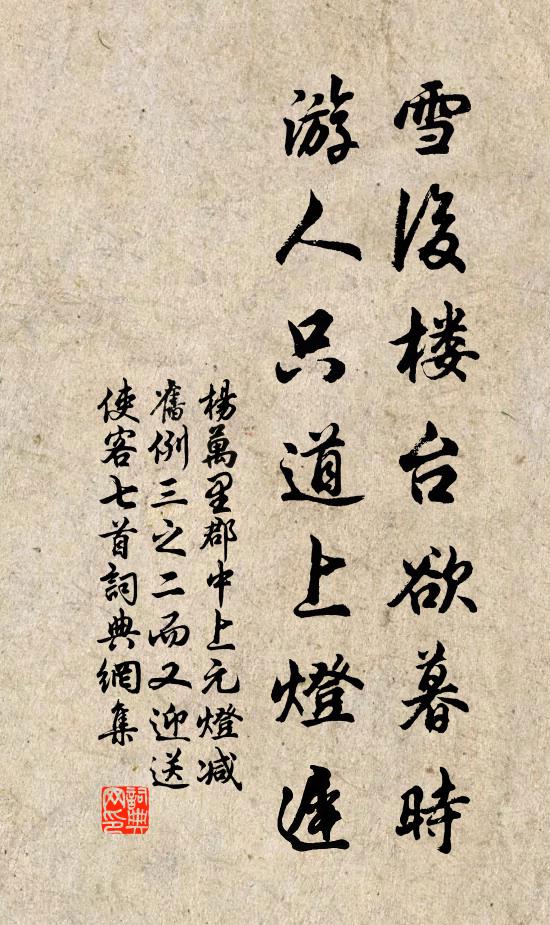 雪後楼台欲暮時
游人只道上燈遲
楊萬里郡中上元燈减
舊例三之二而又迎送
使客七首詞典網集
詞典網印